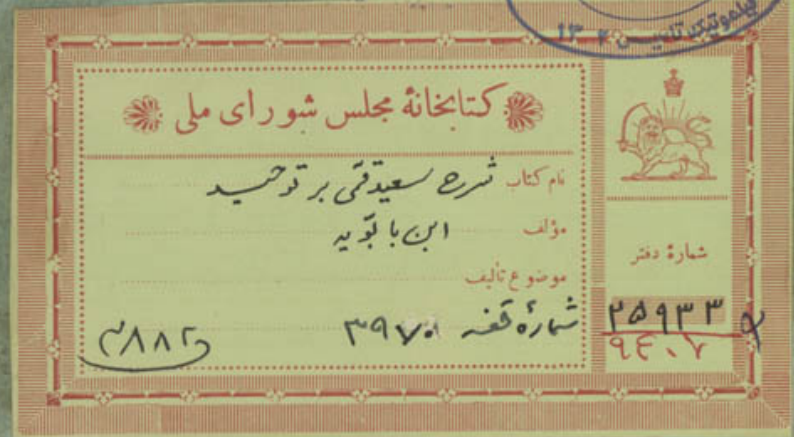 کتابخانهٔ مجلس شورای ملی
نام کتاب شرح سعید قمی بر توحید
مؤلف ابن بابویه
موضوع تألیف
شمارهٔ قفسه ۳۹۷۰
شمارهٔ دفتر
۲۵۹۳۳
۹۴۰۷
۱۳۰۲